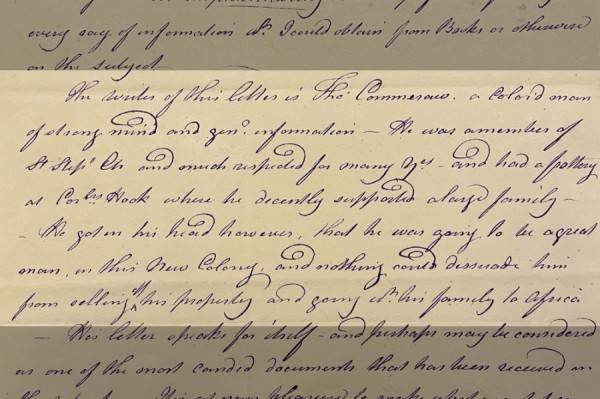 every ray of information wh. I could obtain from Books or otherwise
on the subject
The writer of this letter is Thos. Commeraw. a color'd man
of strong mind and genl. information — He was a member of
St Stepn. Ch and much respected for many yrs — and had a pottery
at Corlrs Hook where he decently supported a large family —
— He got in his head however, that he was going to be a great
man, in this New Colony, and nothing could dissuade him
from selling off his property and going wh. his family to Africa
— His letter speaks for itself — and perhaps may be considered
as one of the most candid documents that has been received on